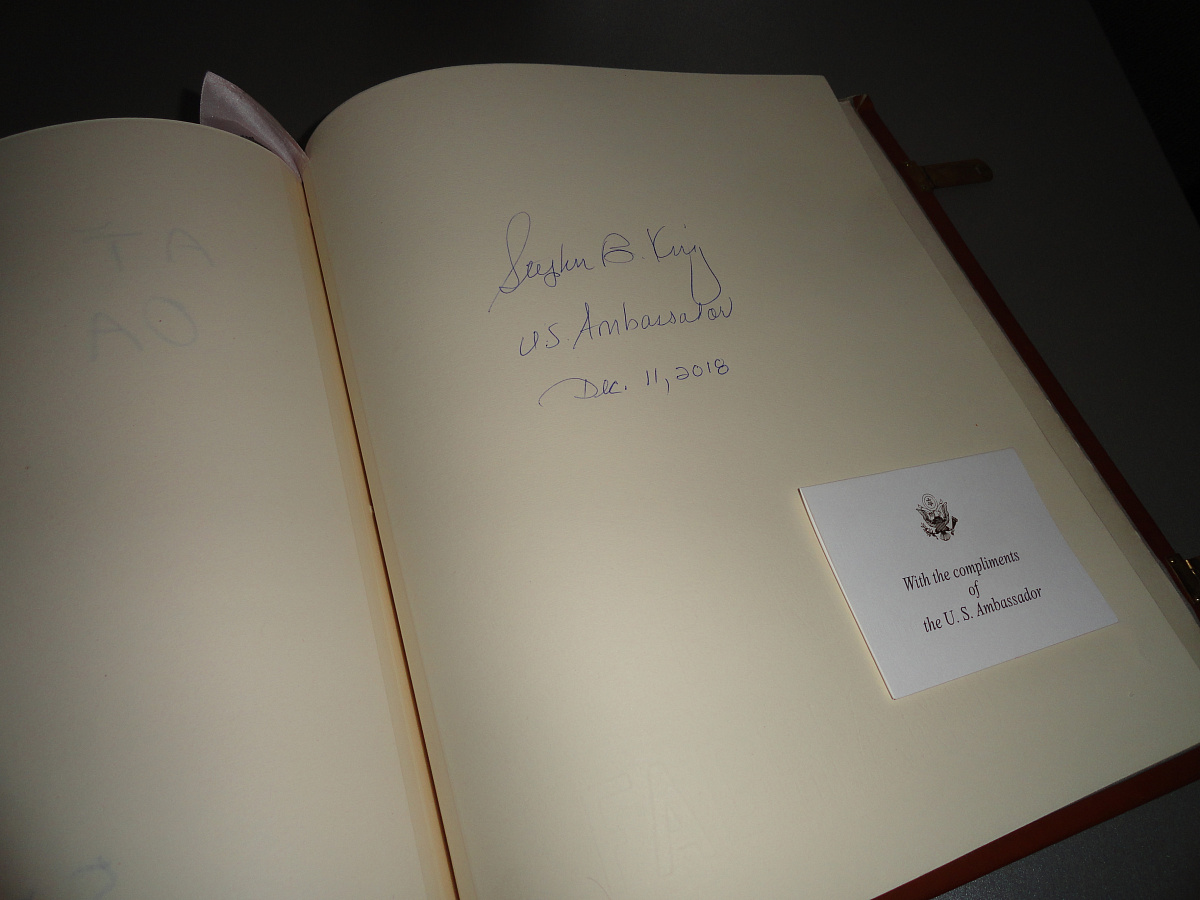 Stephen B. King
U.S. Ambassador
Dec. 11, 2018
With the compliments
of
the U. S. Ambassador